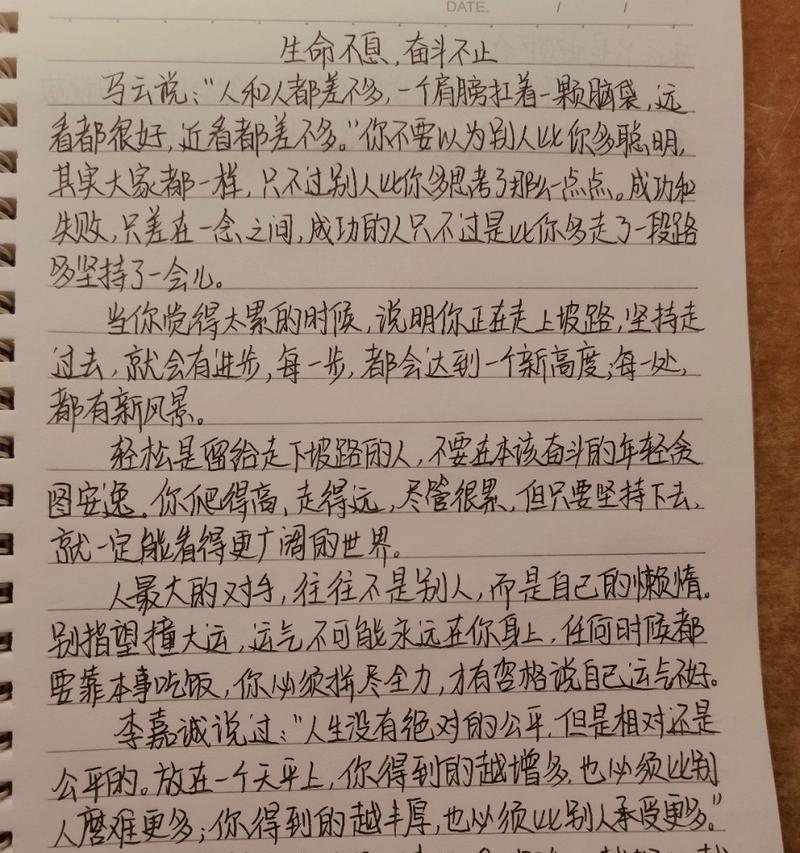 DATE. / /
生命不息,奋斗不止
马云说:“人和人都差不多,一个肩膀扛着一颗脑袋,远
看都很好,近看都差不多。”你不要以为别人比你多聪明,
其实大家都一样,只不过别人比你多思考了那么一点点。成功和
失败,只差在一念之间,成功的人只不过是比你多走了一段路
多坚持了一会儿。
当你觉得太累的时候,说明你正在走上坡路,坚持走
过去,就会有进步,每一步,都会达到一个新高度;每一处,
都有新风景。
轻松是留给走下坡路的人,不要在本该奋斗的年轻贪
图安逸。你爬得高,走得远,尽管很累,但只要坚持下去,
就一定能看得更广阔的世界。
人最大的对手,往往不是别人,而是自己的懒惰。
别指望撞大运,运气不可能永远在你身上,任何时候都
要靠本事吃饭,你必须拼尽全力,才有资格说自己运气不好。
李嘉诚说过:“人生没有绝对的公平,但是相对还是
公平的。放在一个天平上,你得到的越增多,也必须比别
人磨难更多;你得到的越丰厚,也必须比别人承受更多。”